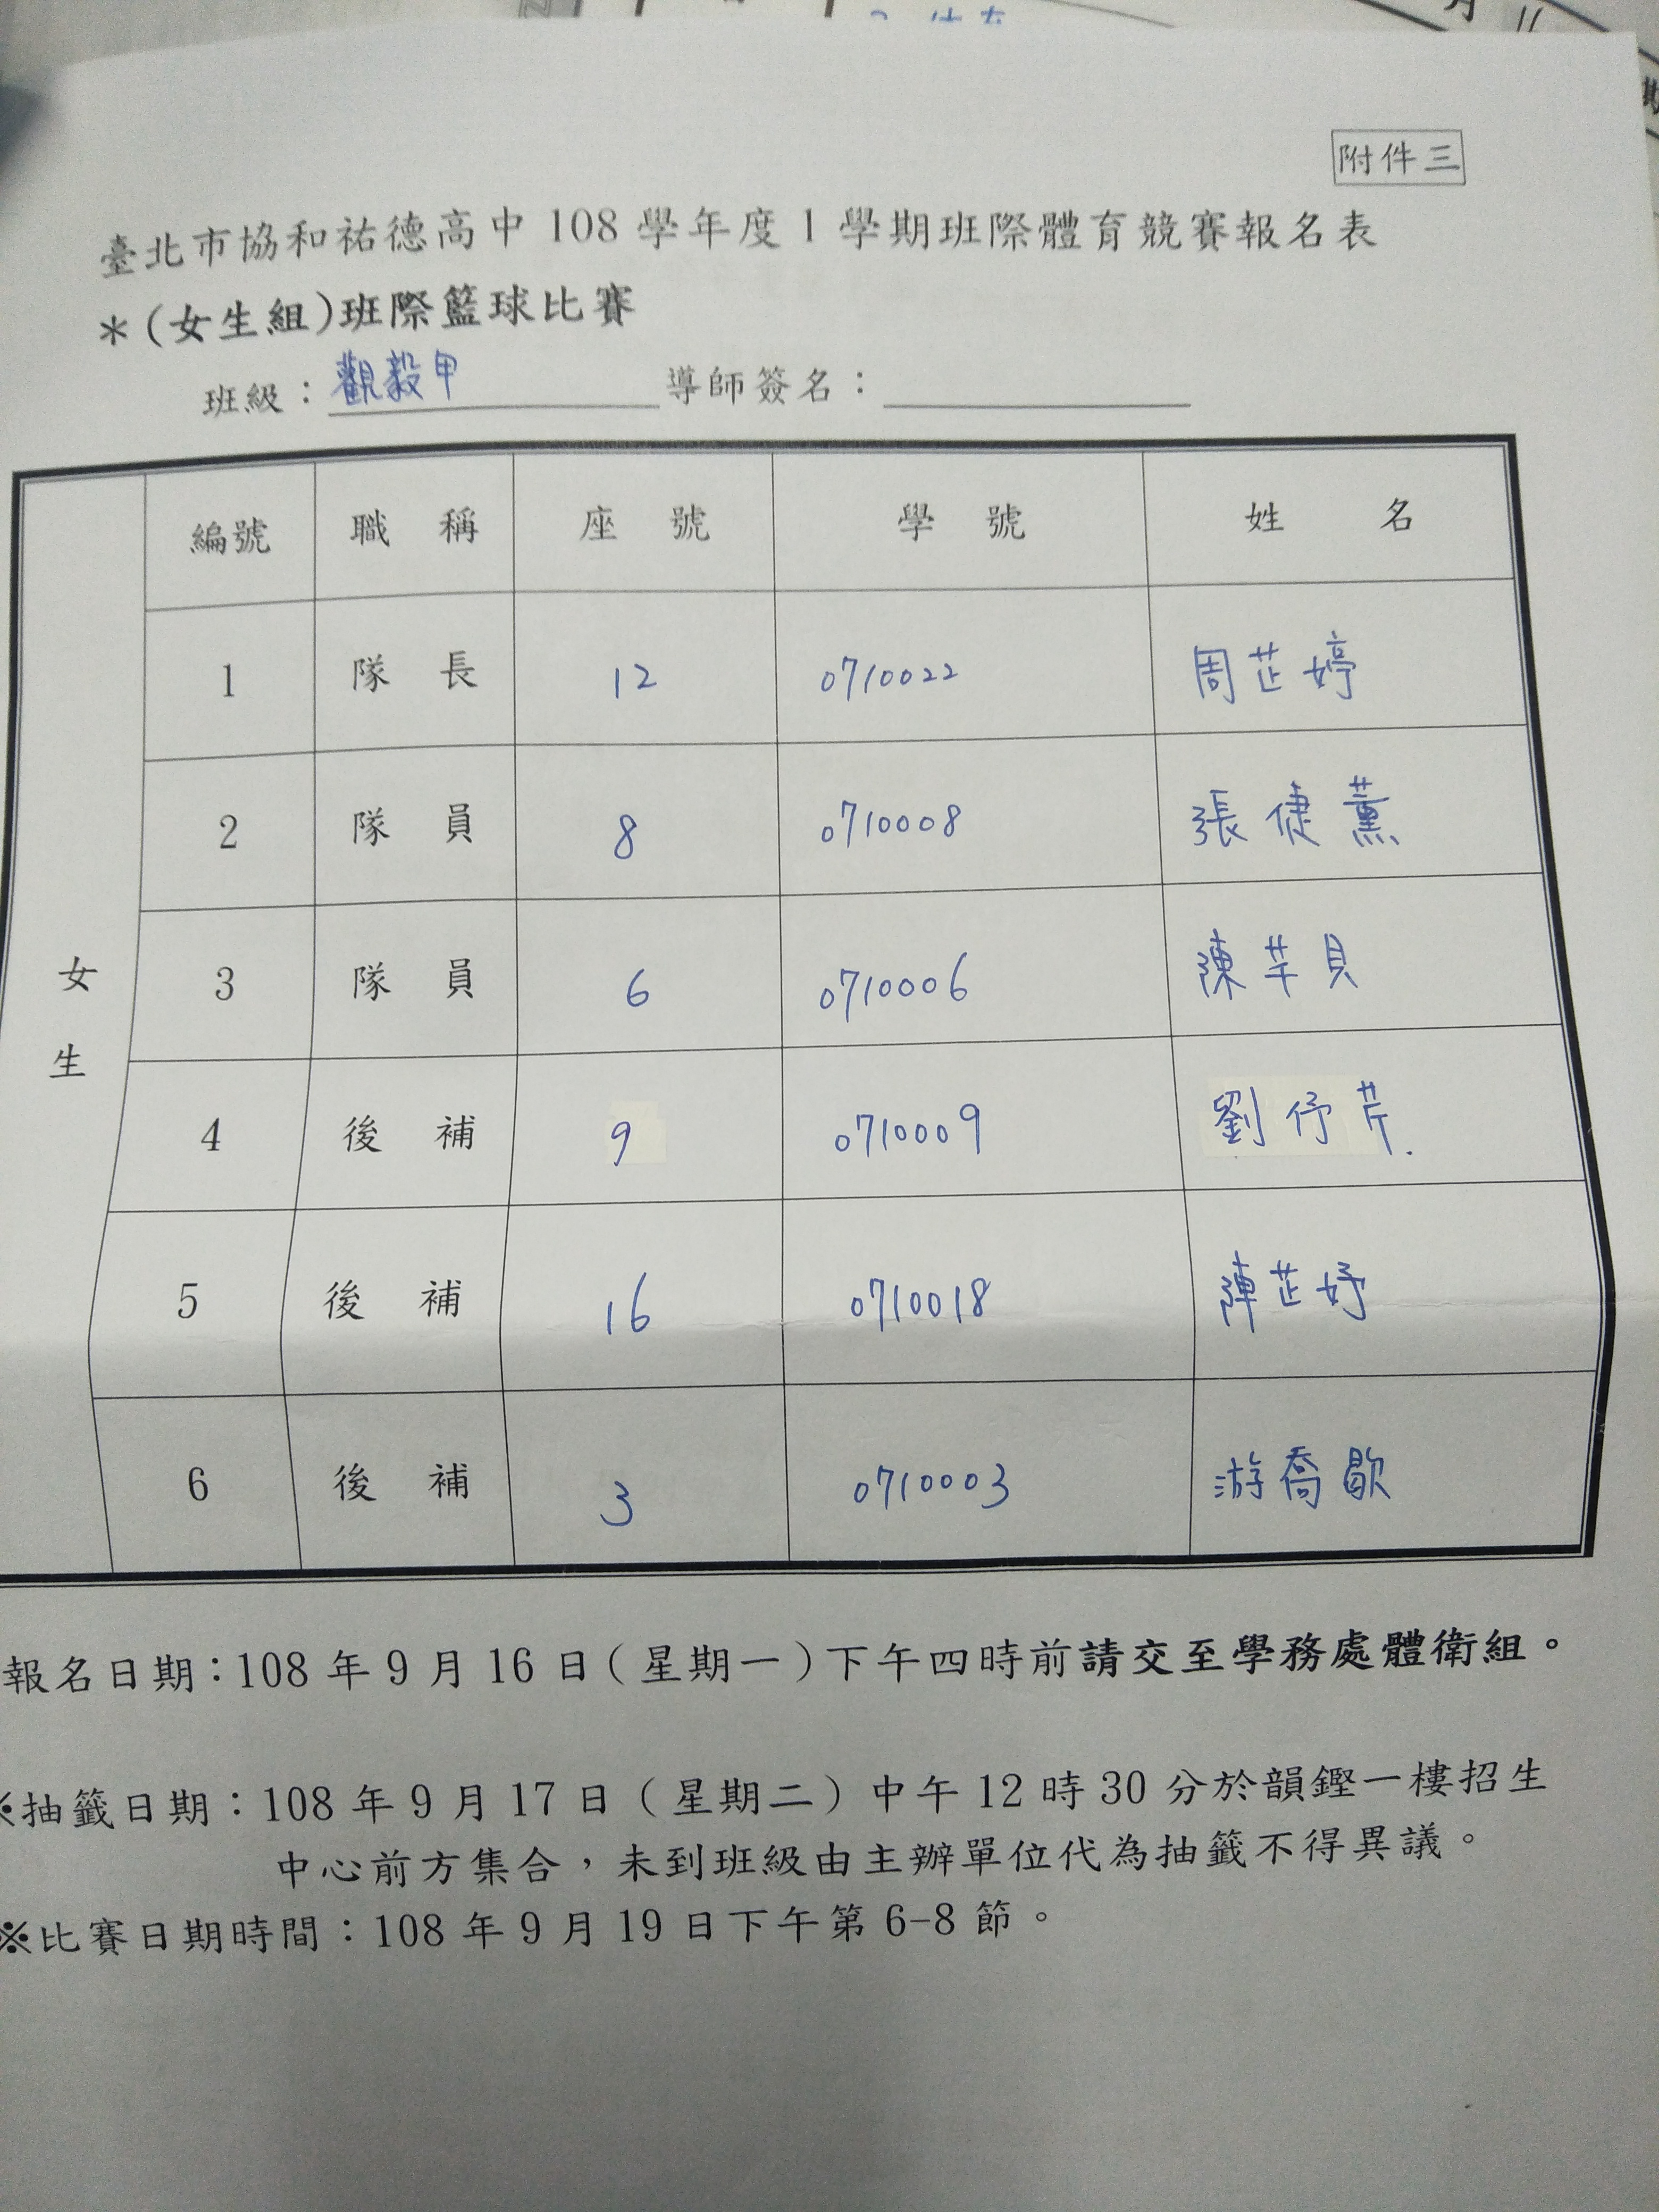 附件三
臺北市協和祐德高中 108 學年度 1 學期班際體育競賽報名表
＊(女生組)班際籃球比賽
班級：觀毅甲 導師簽名：
女生
編號 職稱 座號 學號 姓名
1 隊長 12 0710022 周芷婷
2 隊員 8 0710008 張倢薰
3 隊員 6 0710006 陳芊貝
4 後補 9 0710009 劉伃芹
5 後補 16 0710018 陳芷妤
6 後補 3 0710003 游喬歇
報名日期：108 年 9 月 16 日（星期一）下午四時前請交至學務處體衛組。
※抽籤日期：108 年 9 月 17 日（星期二）中午 12 時 30 分於韻鏗一樓招生
中心前方集合，未到班級由主辦單位代為抽籤不得異議。
※比賽日期時間：108 年 9 月 19 日下午第 6-8 節。